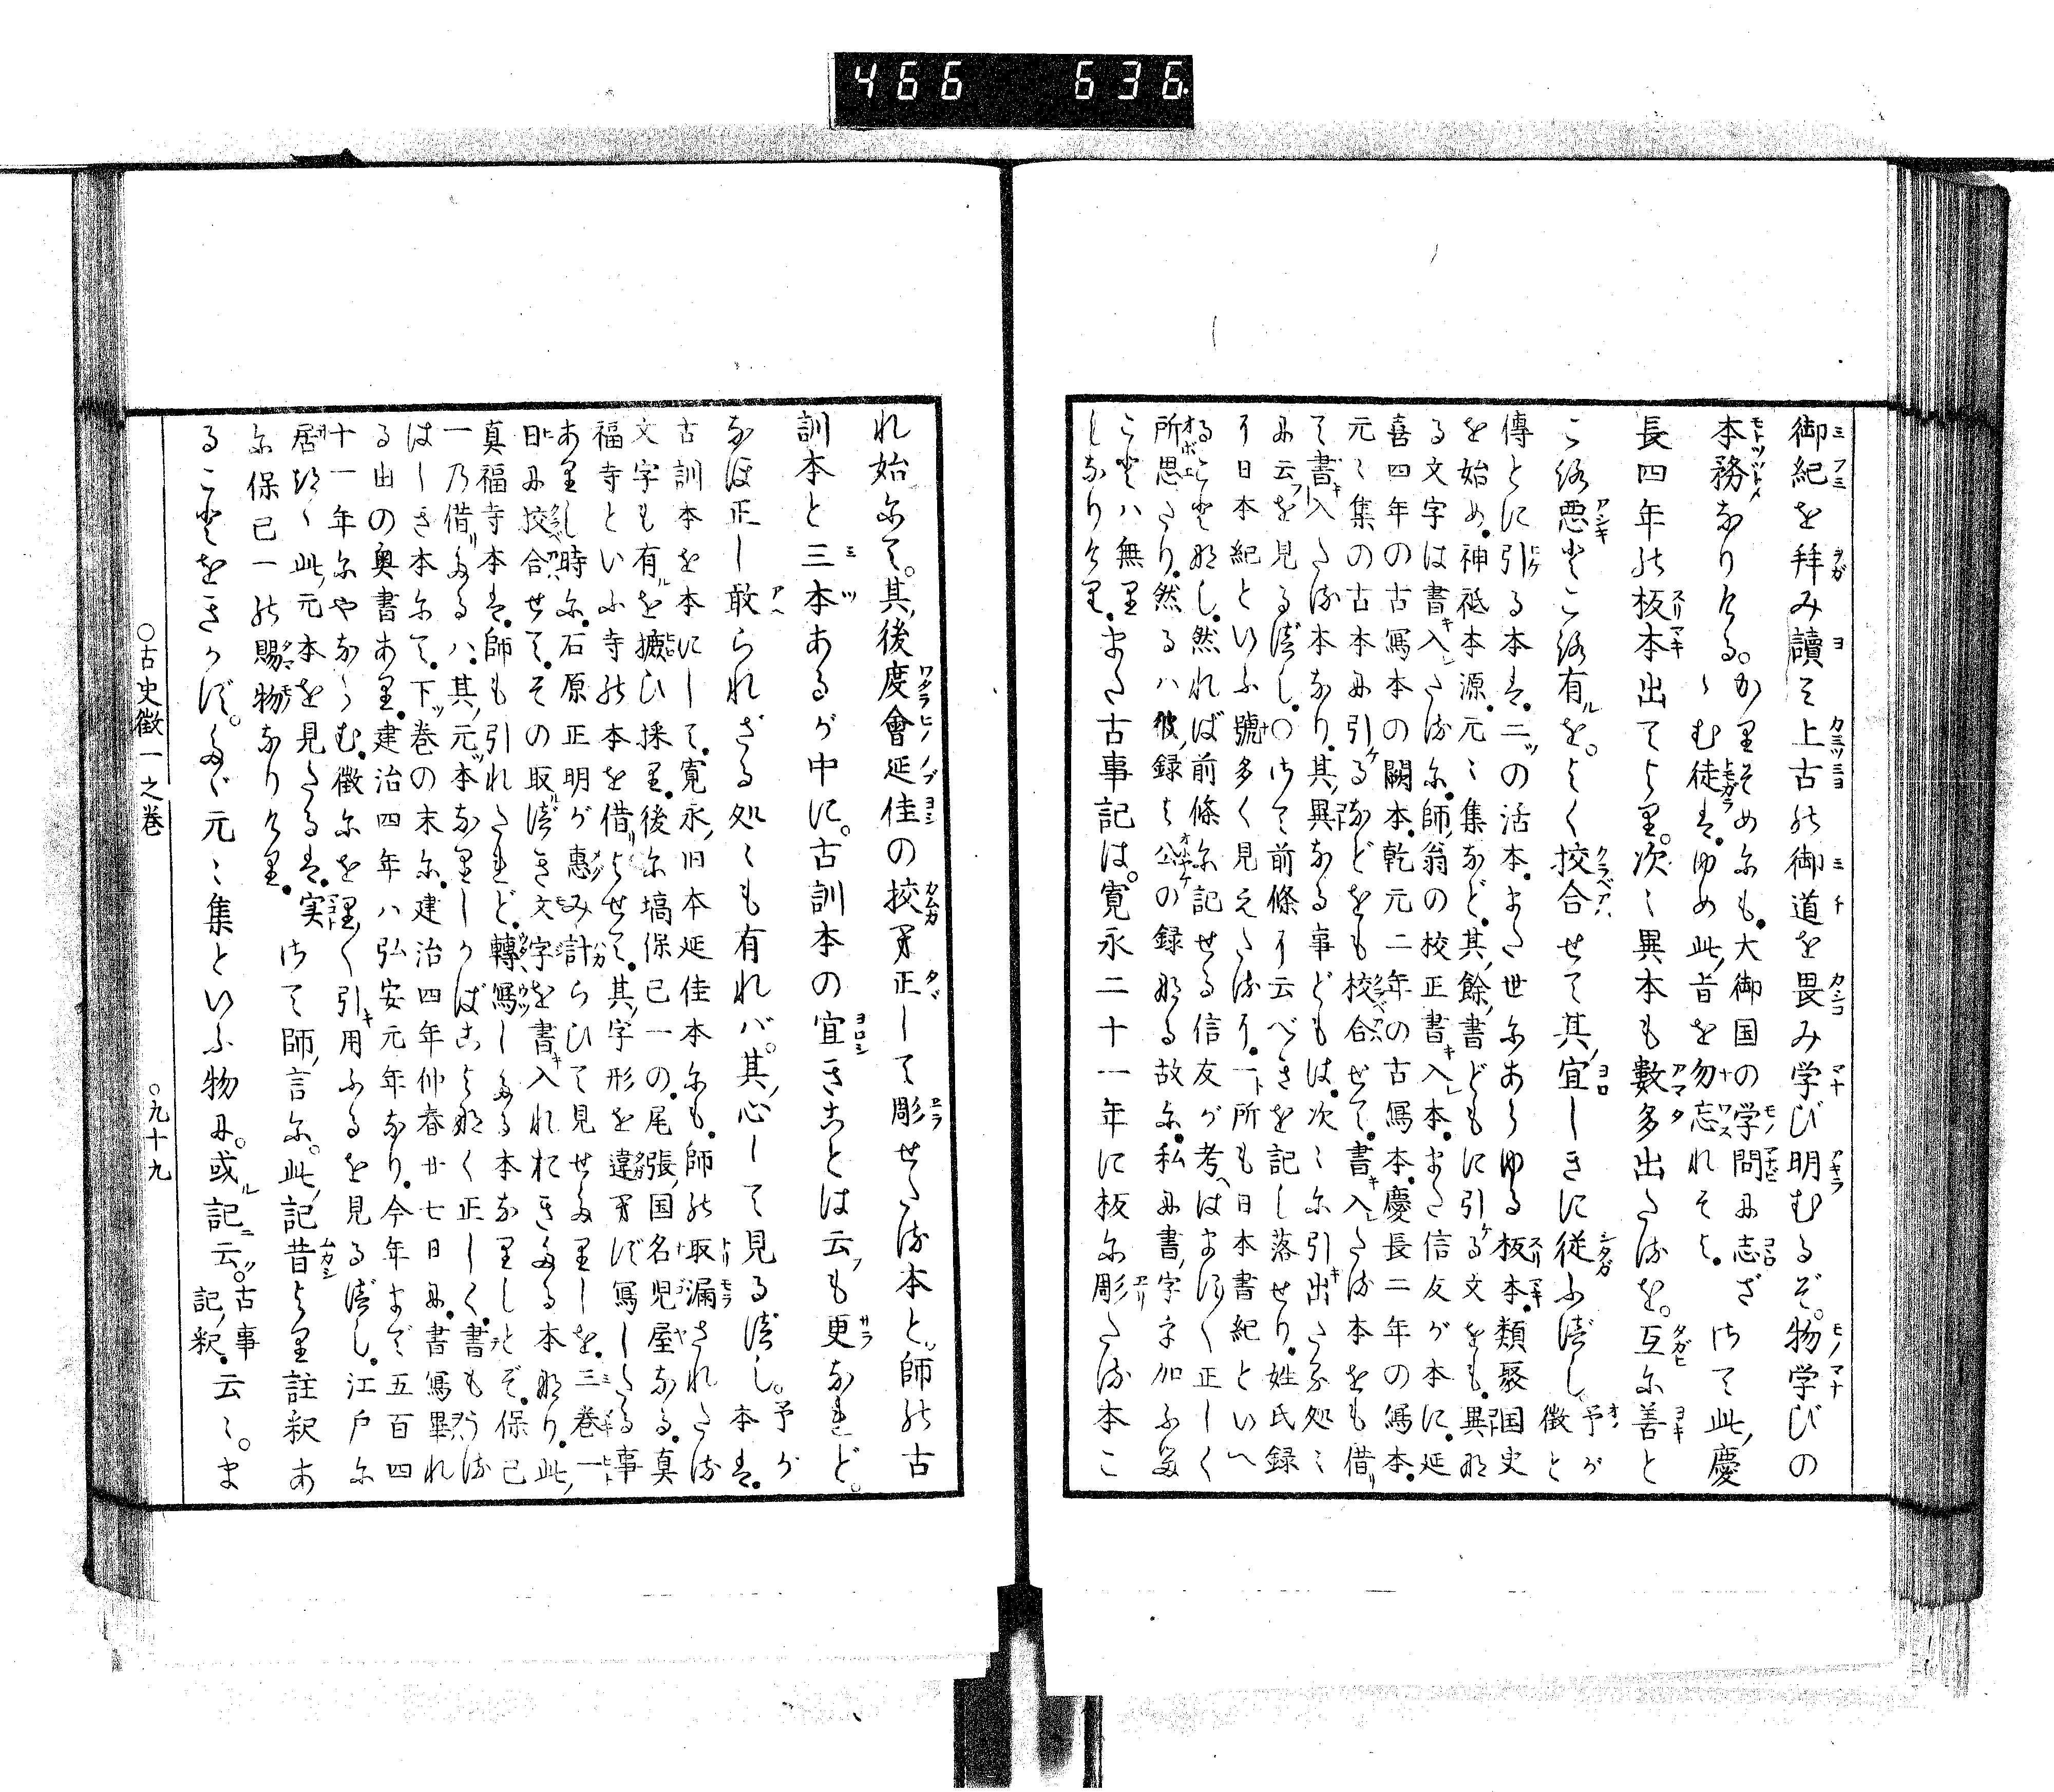 466 636
御紀を拝み讀て上古の御道を畏み学び明むるぞ。物学びの
本務なりける。かりそめにも。大御国の学問に志ざ
さむ徒は。ゆめ此旨を勿忘れそよ。
さて此慶
長四年の板本出てより。次々異本も數多出たるを。互に善と
ころ悪ところ有を。よく挍合せて其宜しきに従ふべし。
予が徴と
傳とに引る本は。二ツの活本。また世にあらゆる板本。類聚国史
を始め。神祇本源。元々集など。其餘書どもに引る文をも。異な
る文字は書入たるに。師翁の校正書入本。また信友が本に。延
喜四年の古寫本の闕本。乾元二年の古寫本。慶長二年の寫本。
元々集の古本に引るなどをも校合せて。書入たる本をも借
て書入たる本なり。其異なる事どもは。次々に引出たる処々
に云を見るべし。○さて前條に云べきを記し落せり。姓氏録
に日本紀といふ號多く見えたるに。一所も日本書紀といへ
ることなし。然れば前條に記せる信友が考はまほく正しく
所思たり。然るハ彼録は公の録なる故に。私に書字字加ふま
ことハ無りしなりけり。
また古事記は。寛永二十一年に板に彫たる本こ
れ始にて。其後度會延佳の挍へ正して彫せたる本と。師の古
訓本と三本あるが中に。古訓本の宜きことは云も更なれど。
なほ正し敢られざる処々も有れバ。其心して見るべし。
予が本は。
古訓本を本にして。寛永旧本延佳本にも。師の取漏されたる
文字も有を摭ひ採り。後に塙保己一の。尾張国名児屋なる。真
福寺といふ寺の本を借よせて。其字形を違へず寫したる事
ありし時に。石原正明が惠み計らひて見せたりしを。三巻一
日に挍合せて。その取べき文字を書入れおきたる本なり。此
真福寺本は。師も引れたれど。轉寫したる本なりしとぞ。保己
一の借たるハ。其元本なりしかばこよなく正しく。書もうる
はしき本にて。下巻の末に。建治四年仲春廿七日に。書寫畢れ
る由の奥書あり。建治四年ハ弘安元年なり。今年まで五百四
十一年にやならむ。徴にを理く引用ふるを見るべし。江戸に
居ながら此元本を見たるは。実
に保己一の賜物なりけり。
さて師言に。此記昔より註釈あ
ることをきかず。たゞ元々集といふ物に。或記云。
古事記釈云々。
ま
○古史徴一之巻
○九十九